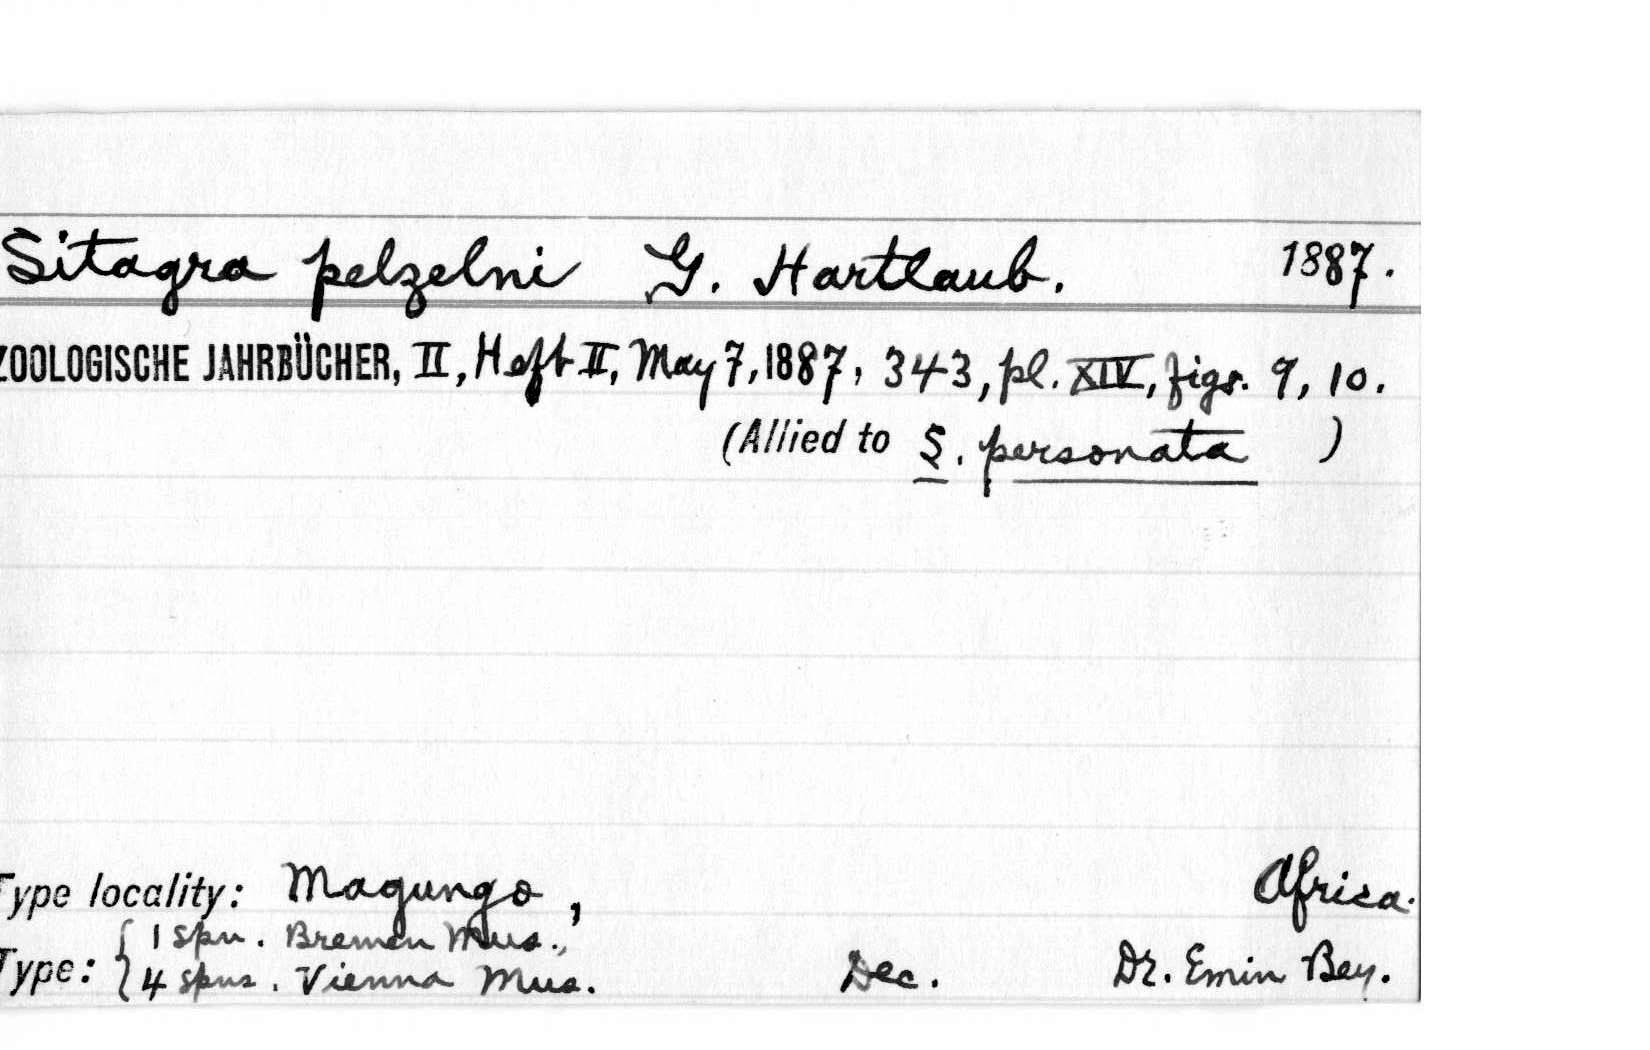 Sitagra pelzelni G. Hartlaub. 1887.
ZOOLOGISCHE JAHRBÜCHER, II, Heft II, May 7, 1887, 343, pl. XIV, figs. 9, 10.
(Allied to S. personata )
Type locality: Magungo, Africa.
Type: { 1 spn. Bremen Mus.,
4 spns. Vienna Mus. Dec. Dr. Emin Bey.